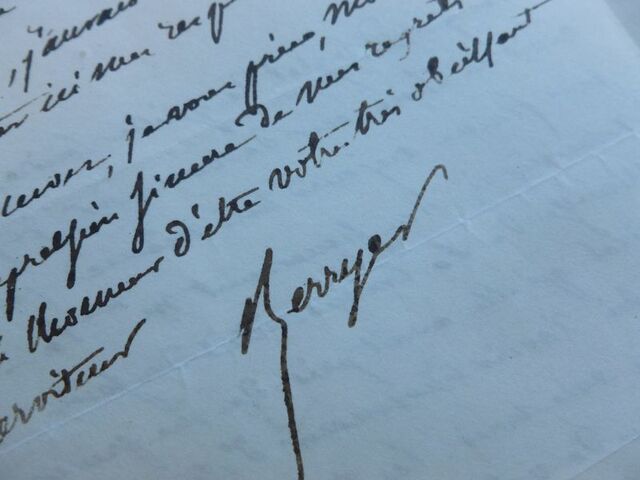 j'aurais
ici mes res
moi, je vous prie, M
expression sincère de mes regrets
l'honneur d'être votre très obéissant
serviteur
Berryer